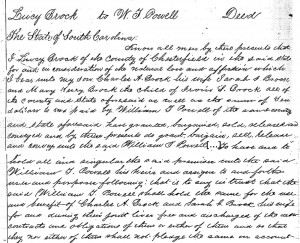 Lucy Brock to W. T. Powell Deed
The State of South Carolina.
Know all men by these presents that
I Lucy Brock of the County of Chesterfield in the said State
for and in consideration of the natural love and affection which
I bear unto my Son Charles A. Brock his wife Sarah E. Brock
and Mary Lucy Brock the child of Irvin S. Brock all of
the County and State aforesaid as well as the sum of Ten
dollars to me paid by William T. Powell of the same county
and State aforesaid have granted, bargained, sold, released
conveyed and by these presents do grant, bargain, sell, release
and convey unto the said William T. Powell To have and to
hold all and singular the said premises unto the said
William T. Powell his heirs and assigns to and for the
uses and purposes following that is to say in trust that the
said William T. Powell shall hold the same for the use
and benefit of Charles A. Brock and Sarah E. Brock his wife
for and during their joint lives free and discharged of the
contracts and obligations of them or either of them and so that
they nor either of them shall not pledge the same on account